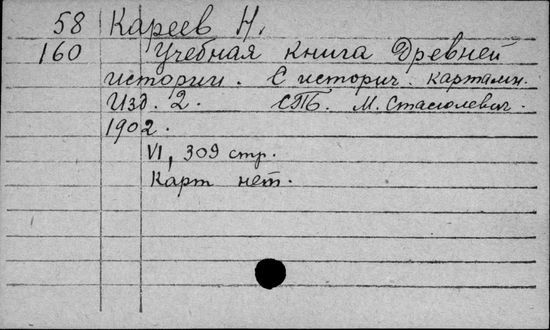 58 Кареев Н.
160 Учебная книга Древней
истории. С историч. картами.
Изд. 2. СПБ. М. Стасюлевич.
1902.
VI, 309 стр.
Карт нет.